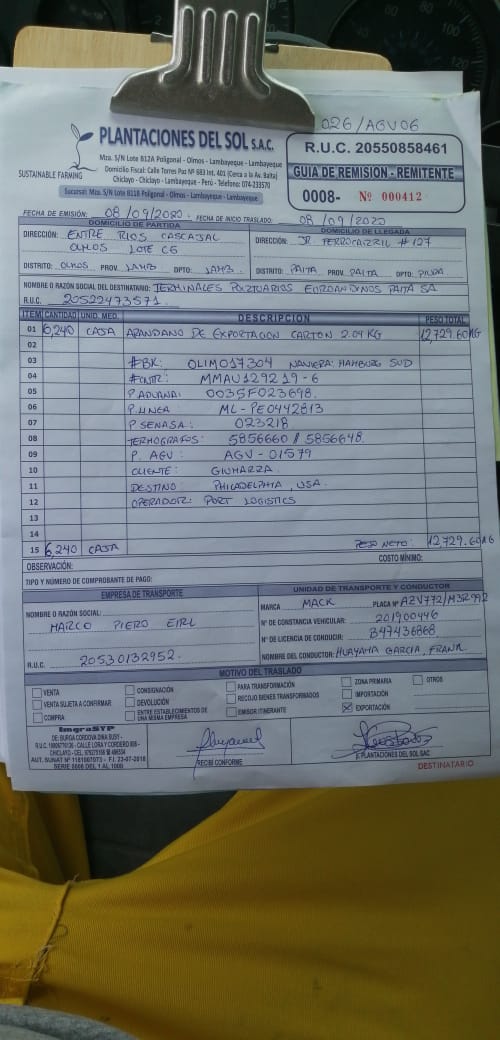 026/AGV06
PLANTACIONES DEL SOL S.A.C.
Mza. S/N Lote B12A Poligonal - Olmos - Lambayeque - Lambayeque
Domicilio Fiscal: Calle Torres Paz Nº 683 Int. 401 (Cerca a la Av. Balta)
Chiclayo - Chiclayo - Lambayeque - Perú - Telefono: 074-233570
Sucursal: Mza. S/N Lote B11B Poligonal - Olmos - Lambayeque - Lambayeque
SUSTAINABLE FARMING
R.U.C. 20550858461
GUIA DE REMISION - REMITENTE
0008- Nº 000412
FECHA DE EMISIÓN: 08/09/2020 - FECHA DE INICIO TRASLADO: 08/09/2020
DOMICILIO DE PARTIDA DOMICILIO DE LLEGADA
DIRECCIÓN: ENTRE RIOS CASCAJAL DIRECCIÓN: JR FERROCARRIL # 127
OLMOS LOTE C6
DISTRITO: OLMOS PROV. LAMB DPTO: LAMB. DISTRITO: PAITA PROV. PAITA DPTO: PIURA
NOMBRE O RAZÓN SOCIAL DEL DESTINATARIO: TERMINALES PORTUARIOS EUROANDINOS PAITA SA
R.U.C. 20522473571
ITEM CANTIDAD UNID. MED. DESCRIPCION PESO TOTAL
01 6,240 CAJA ARANDANO DE EXPORTACION CARTON 2.04 KG 12,729.60KG
02
03 #BK: OLIMO17304 NAVIERA: HAMBURG SUD
04 #CNTR: MMAU129219-6
05 P. ADUANA: 0035F023698.
06 P. LINEA: ML-PE0442813
07 P SENASA: 023218
08 TERMOGRAFOS: 5856660 // 5856648.
09 P. AGV: AGV-01579
10 CLIENTE: GIUMARRA.
11 DESTINO PHILADELPHIA, USA.
12 OPERADOR: PORT LOGISTICS
13
14
15 6,240 CAJA PESO NETO: 12,729.60KG
OBSERVACIÓN: COSTO MÍNIMO:
TIPO Y NÚMERO DE COMPROBANTE DE PAGO:
EMPRESA DE TRANSPORTE UNIDAD DE TRANSPORTE Y CONDUCTOR
NOMBRE O RAZÓN SOCIAL: MARCA MACK PLACA Nº AZV772/M3R992
MARCO PIERO EIRL Nº DE CONSTANCIA VEHICULAR: 201900446
Nº DE LICENCIA DE CONDUCIR: B47436868.
R.U.C. 20530132952. NOMBRE DEL CONDUCTOR: HUAYAMA GARCIA, FRANK
MOTIVO DEL TRASLADO
VENTA CONSIGNACIÓN PARA TRANSFORMACIÓN ZONA PRIMARIA OTROS
VENTA SUJETA A CONFIRMAR DEVOLUCIÓN RECOJO BIENES TRANSFORMADOS IMPORTACIÓN
COMPRA ENTRE ESTABLECIMIENTOS DE UNA MISMA EMPRESA EMISOR ITINERANTE X EXPORTACIÓN
ImgraSYP
DE: BURGA CORDOVA DINA SUSY -
CALLE LORA Y CORDERO 806 -
AUT. SUNAT Nº 1181007073 - F.I. 23-07-2018
SERIE 0008 DEL 1 AL 1000
RECIBÍ CONFORME
P. PLANTACIONES DEL SOL SAC
DESTINATARIO